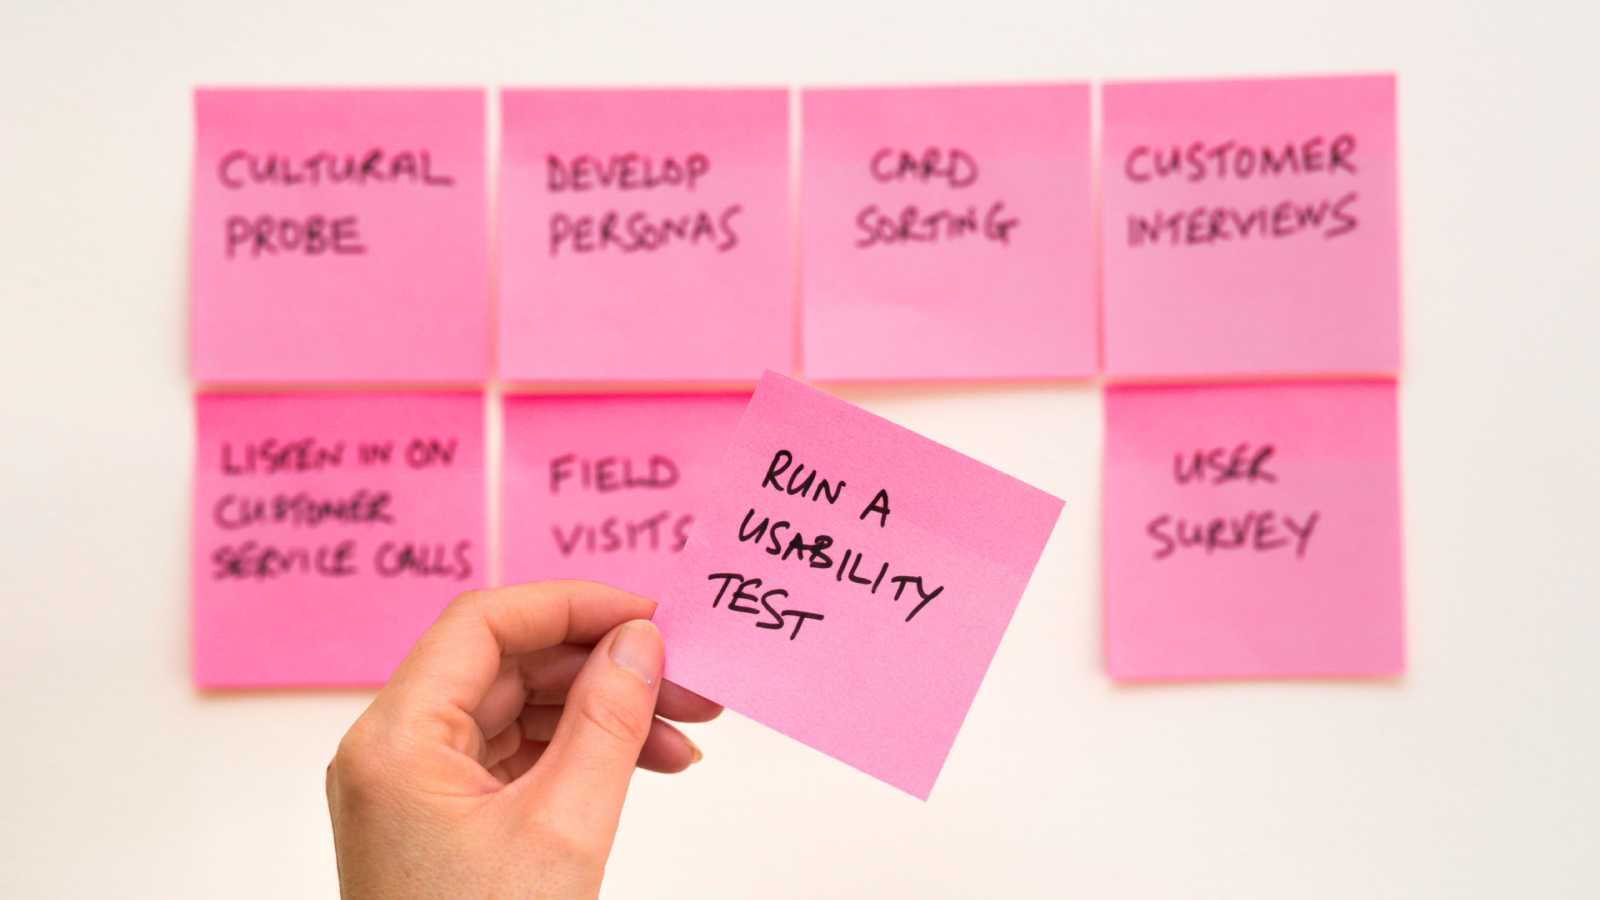 CULTURAL
PROBE
DEVELOP
PERSONAS
CARD
SORTING
CUSTOMER
INTERVIEWS
LISTEN IN ON
CUSTOMER
SERVICE CALLS
FIELD
VISITS
RUN A
USABILITY
TEST
USER
SURVEY